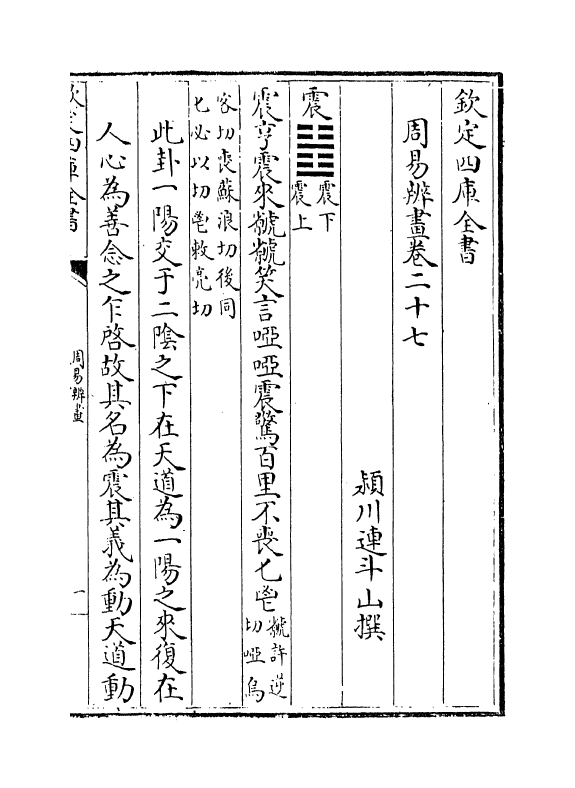 欽定四庫全書
周易辨畫卷二十七
潁川連斗山撰
震䷲震下震上
震亨震來虩虩笑言啞啞震驚百里不喪匕鬯虩許逆切啞烏
客切喪蘇浪切後同匕必以切鬯敕亮切
此卦一陽交于二陰之下在天道為一陽之來復在
人心為善念之乍啓故其名為震其義為動天道動
欽定四庫全書
周易辨畫
一